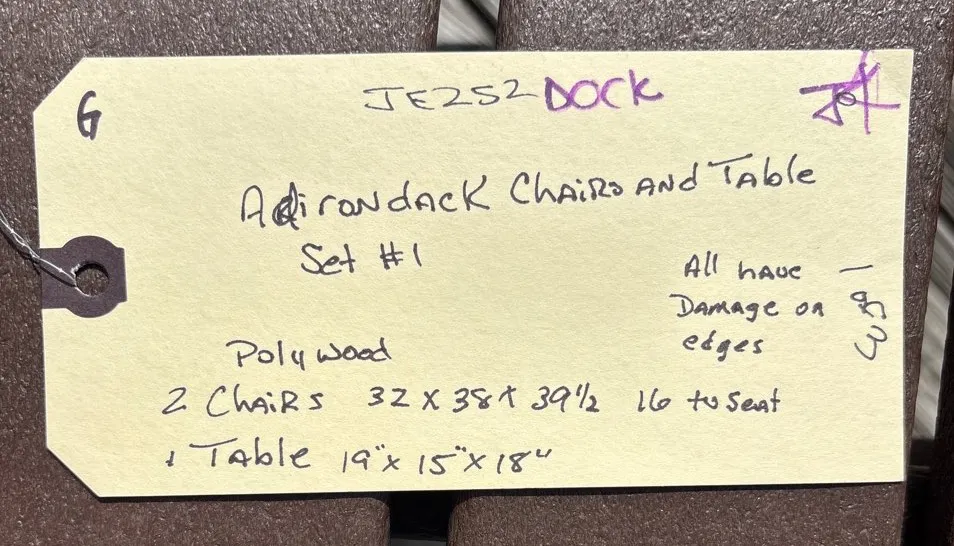 G
JE252 DOCK
Adirondack Chairs AND Table
Set #1
All have
Damage on
edges
Polywood
2 Chairs 32 x 38 x 39 1/2 16 to seat
1 Table 19" x 15" x 18"